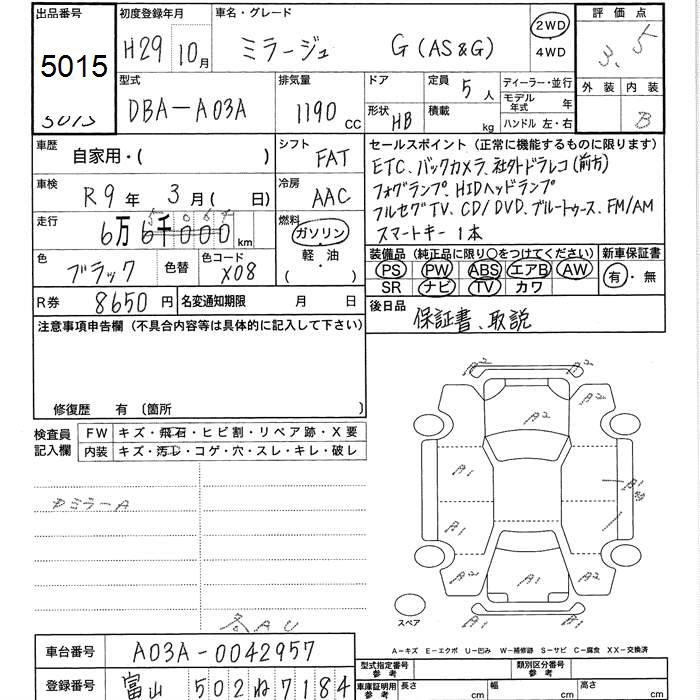 出品番号 初度登録年月 車名・グレード 評価点
5015 H29 10月 ミラージュ G (AS&G) 2WD 4WD 3.5
5015
型式 排気量 ドア 定員 ディーラー・並行 外装 内装
DBA-A03A 1190 CC 5人 モデル年式 年 B
形状 HB 積載 kg ハンドル 左・右
車歴 自家用・( ) シフト FAT セールスポイント (正常に機能するものに限ります)
ETC、バックカメラ、社外ドラレコ(前方)
車検 R9年 3月( 日) 冷房 AAC フォグランプ、HIDヘッドランプ
フルセグTV、CD/DVD、ブルートゥース、FM/AM
走行 6万 6千000 km 燃料 ガソリン スマートキー 1本
軽・油
( )
色 ブラック 色替 色コード X08 装備品 (純正品に限り○をつけてください) 新車保証書
PS PW ABS エアB AW 有・無
SR ナビ TV カワ
R券 8650円 名変通知期限 月 日 後日品
保証書、取説
注意事項申告欄 (不具合内容等は具体的に記入して下さい)
修復歴 有 〔箇所 〕
検査員記入欄 FW キズ・飛石・ヒビ割・リペア跡・X要
内装 キズ・汚し・コゲ・穴・スレ・キレ・破レ
A2
A2 A2 A2
A1 B1
B1
A2 A1 A2
A1 A1
スペア
A-キズ E-エクボ U-凹み W-補修跡 S-サビ C-腐食 XX-交換済
各AU
車台番号 A03A-0042957
型式指定番号 参考 類別区分番号 参考
登録番号 富山 502 ね 7184
車庫証明用 参考 長さ cm 幅 cm 高さ cm